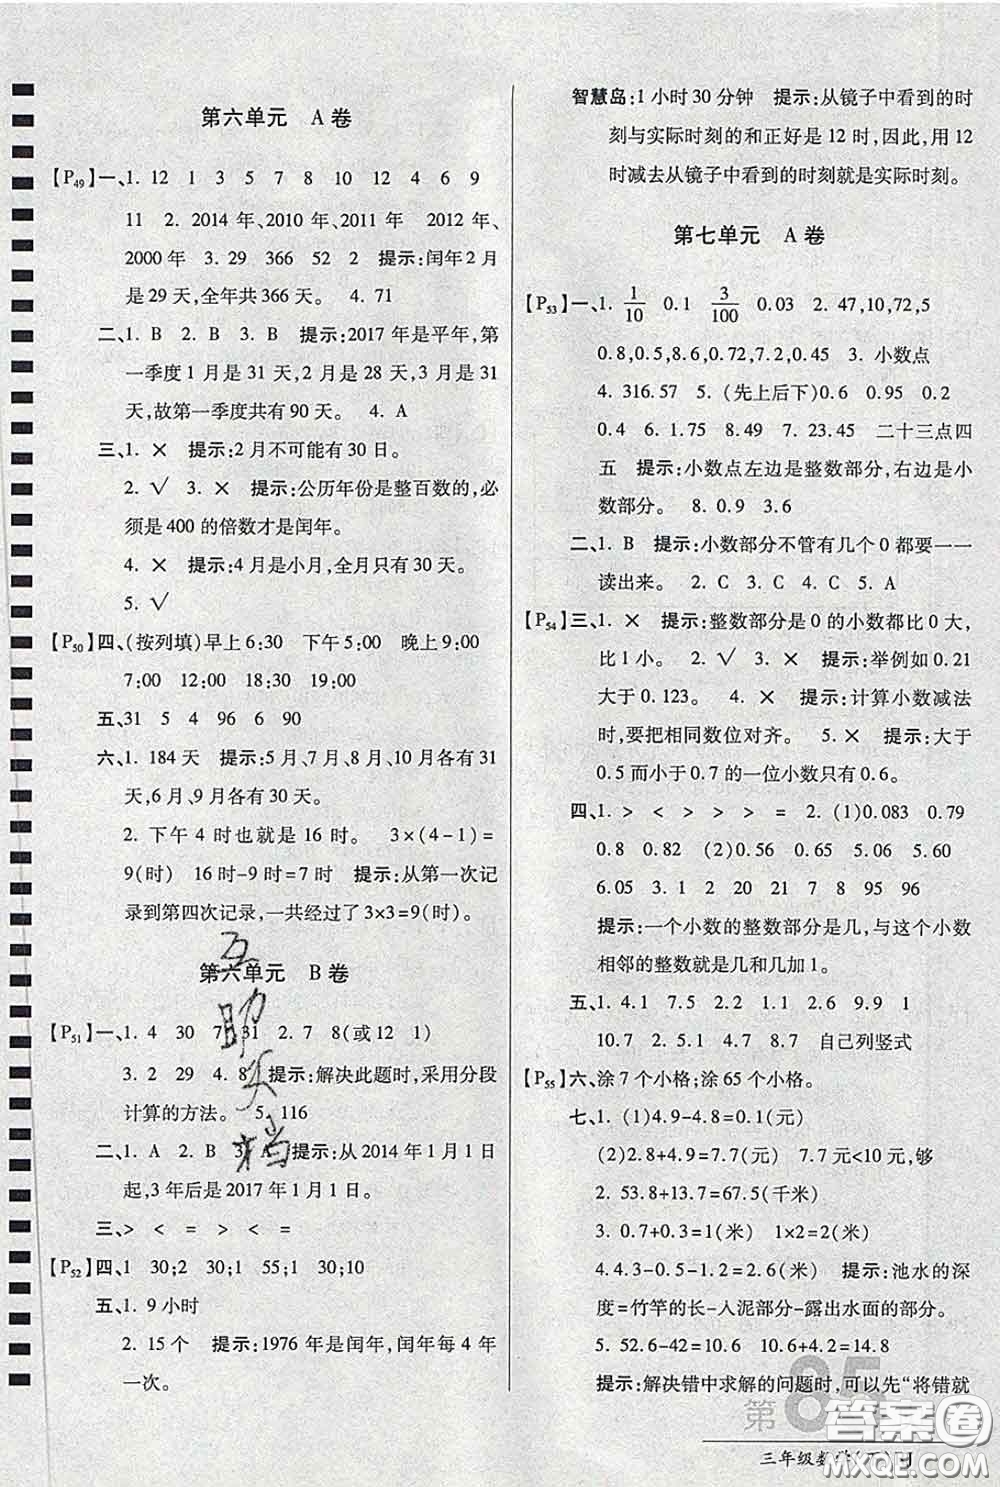 第六单元 A卷
【P49】一、1. 12 1 3 5 7 8 10 12 4 6 9
11 2. 2014 年、2010 年、2011 年 2012 年、
2000 年 3. 29 366 52 2 提示:闰年 2 月
是 29 天,全年共 366 天。 4. 71
二、1. B 2. B 3. B 提示:2017 年是平年,第
一季度 1 月是 31 天,2 月是 28 天,3 月是 31
天,故第一季度共有 90 天。 4. A
三、1. × 提示:2 月不可能有 30 日。
2. √ 3. × 提示:公历年份是整百数的,必
须是 400 的倍数才是闰年。
4. × 提示:4 月是小月,全月只有 30 天。
5. √
【P50】四、(按列填)早上 6:30 下午 5:00 晚上 9:00
7:00 12:00 18:30 19:30
五、31 5 4 96 6 90
六、1. 184 天 提示:5 月、7 月、8 月、10 月各有 31
天,6 月、9 月各有 30 天。
2. 下午 4 时也就是 16 时。 3×(4-1)=
9(时) 16 时-9 时=7 时 提示:从第一次记
录到第四次记录,一共经过了 3×3=9(时)。
第六单元 B卷
【P51】一、1. 4 30 7 31 2. 7 8(或 12 1)
3. 2 29 4. 8 提示:解决此题时,采用分段
计算的方法。 5. 116
二、1. A 2. B 3. A 提示:从 2014 年 1 月 1 日
起,3 年后是 2017 年 1 月 1 日。
三、> < = > < =
【P52】四、1 30;2 30;1 55;30;10
五、1. 9 小时
2. 15 个 提示:1976 年是闰年,闰年每 4 年
一次。
互
助
头
档
智慧岛:1 小时 30 分钟 提示:从镜子中看到的时
刻与实际时刻的和正好是 12 时,因此,用 12
时减去从镜子中看到的时刻就是实际时刻。
第七单元 A卷
【P53】一、1. 1/10 0.1 3/100 0.03 2. 47,10,72,5
0.8,0.5,8.6,0.72,7.2,0.45 3. 小数点
4. 316.57 5. (先上后下)0.6 0.95 0.2
0.4 6. 1.75 8.49 7. 23.45 二十三点四
五 提示:小数点左边是整数部分,右边是小
数部分。 8. 0.9 3.6
二、1. B 提示:小数部分不管有几个 0 都要一一
读出来。 2. C 3. C 4. C 5. A
【P54】三、1. × 提示:整数部分是 0 的小数都比 0 大,
比 1 小。 2. √ 3. × 提示:举例如 0.21
大于 0.123。 4. × 提示:计算小数减法
时,要把相同数位对齐。 5. × 提示:大于
0.5 而小于 0.7 的一位小数只有 0.6。
四、1. > < > > > = 2. (1)0.083 0.79
0.8 0.82 (2)0.56 0.65 5.06 5.60
6.05 3. 1 2 20 21 7 8 95 96
提示:一个小数的整数部分是几,与这个小数
相邻的整数就是几和几加 1。
五、1. 4.1 7.5 2.2 2.6 9.9 1
10.7 2. 10.4 2.7 5.2 自己列竖式
【P55】六、涂 7 个小格;涂 65 个小格。
七、1. (1)4.9-4.8=0.1(元)
(2)2.8+4.9=7.7(元) 7.7 元<10 元,够
2. 53.8+13.7=67.5(千米)
3. 0.7+0.3=1(米) 1×2=2(米)
4.4.3-0.6-0.7=3(米) 提示:池水的深
度=竹竿的长-入泥部分-露出水面的部分。
5. 52.6-42=10.6 10.6+4.2=14.8
提示:解决错中求解的问题时,可以先“将错就
第85
三年级数学(下)RJ
答案卷
MXQE.COM